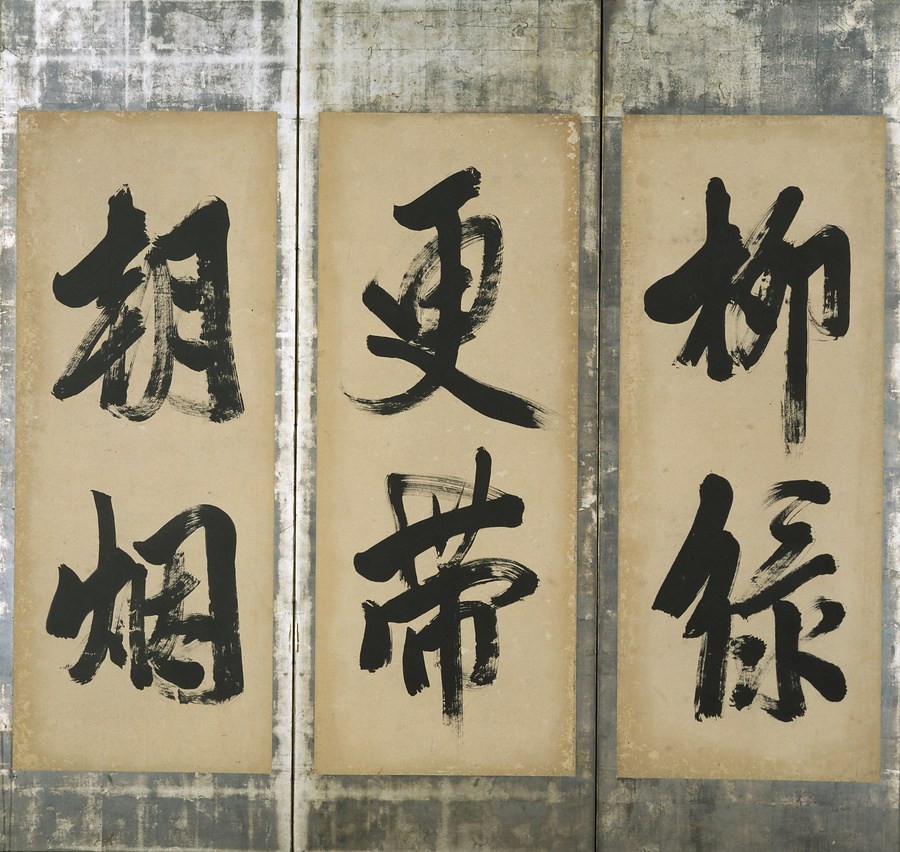 柳綠
更帶
朝烟